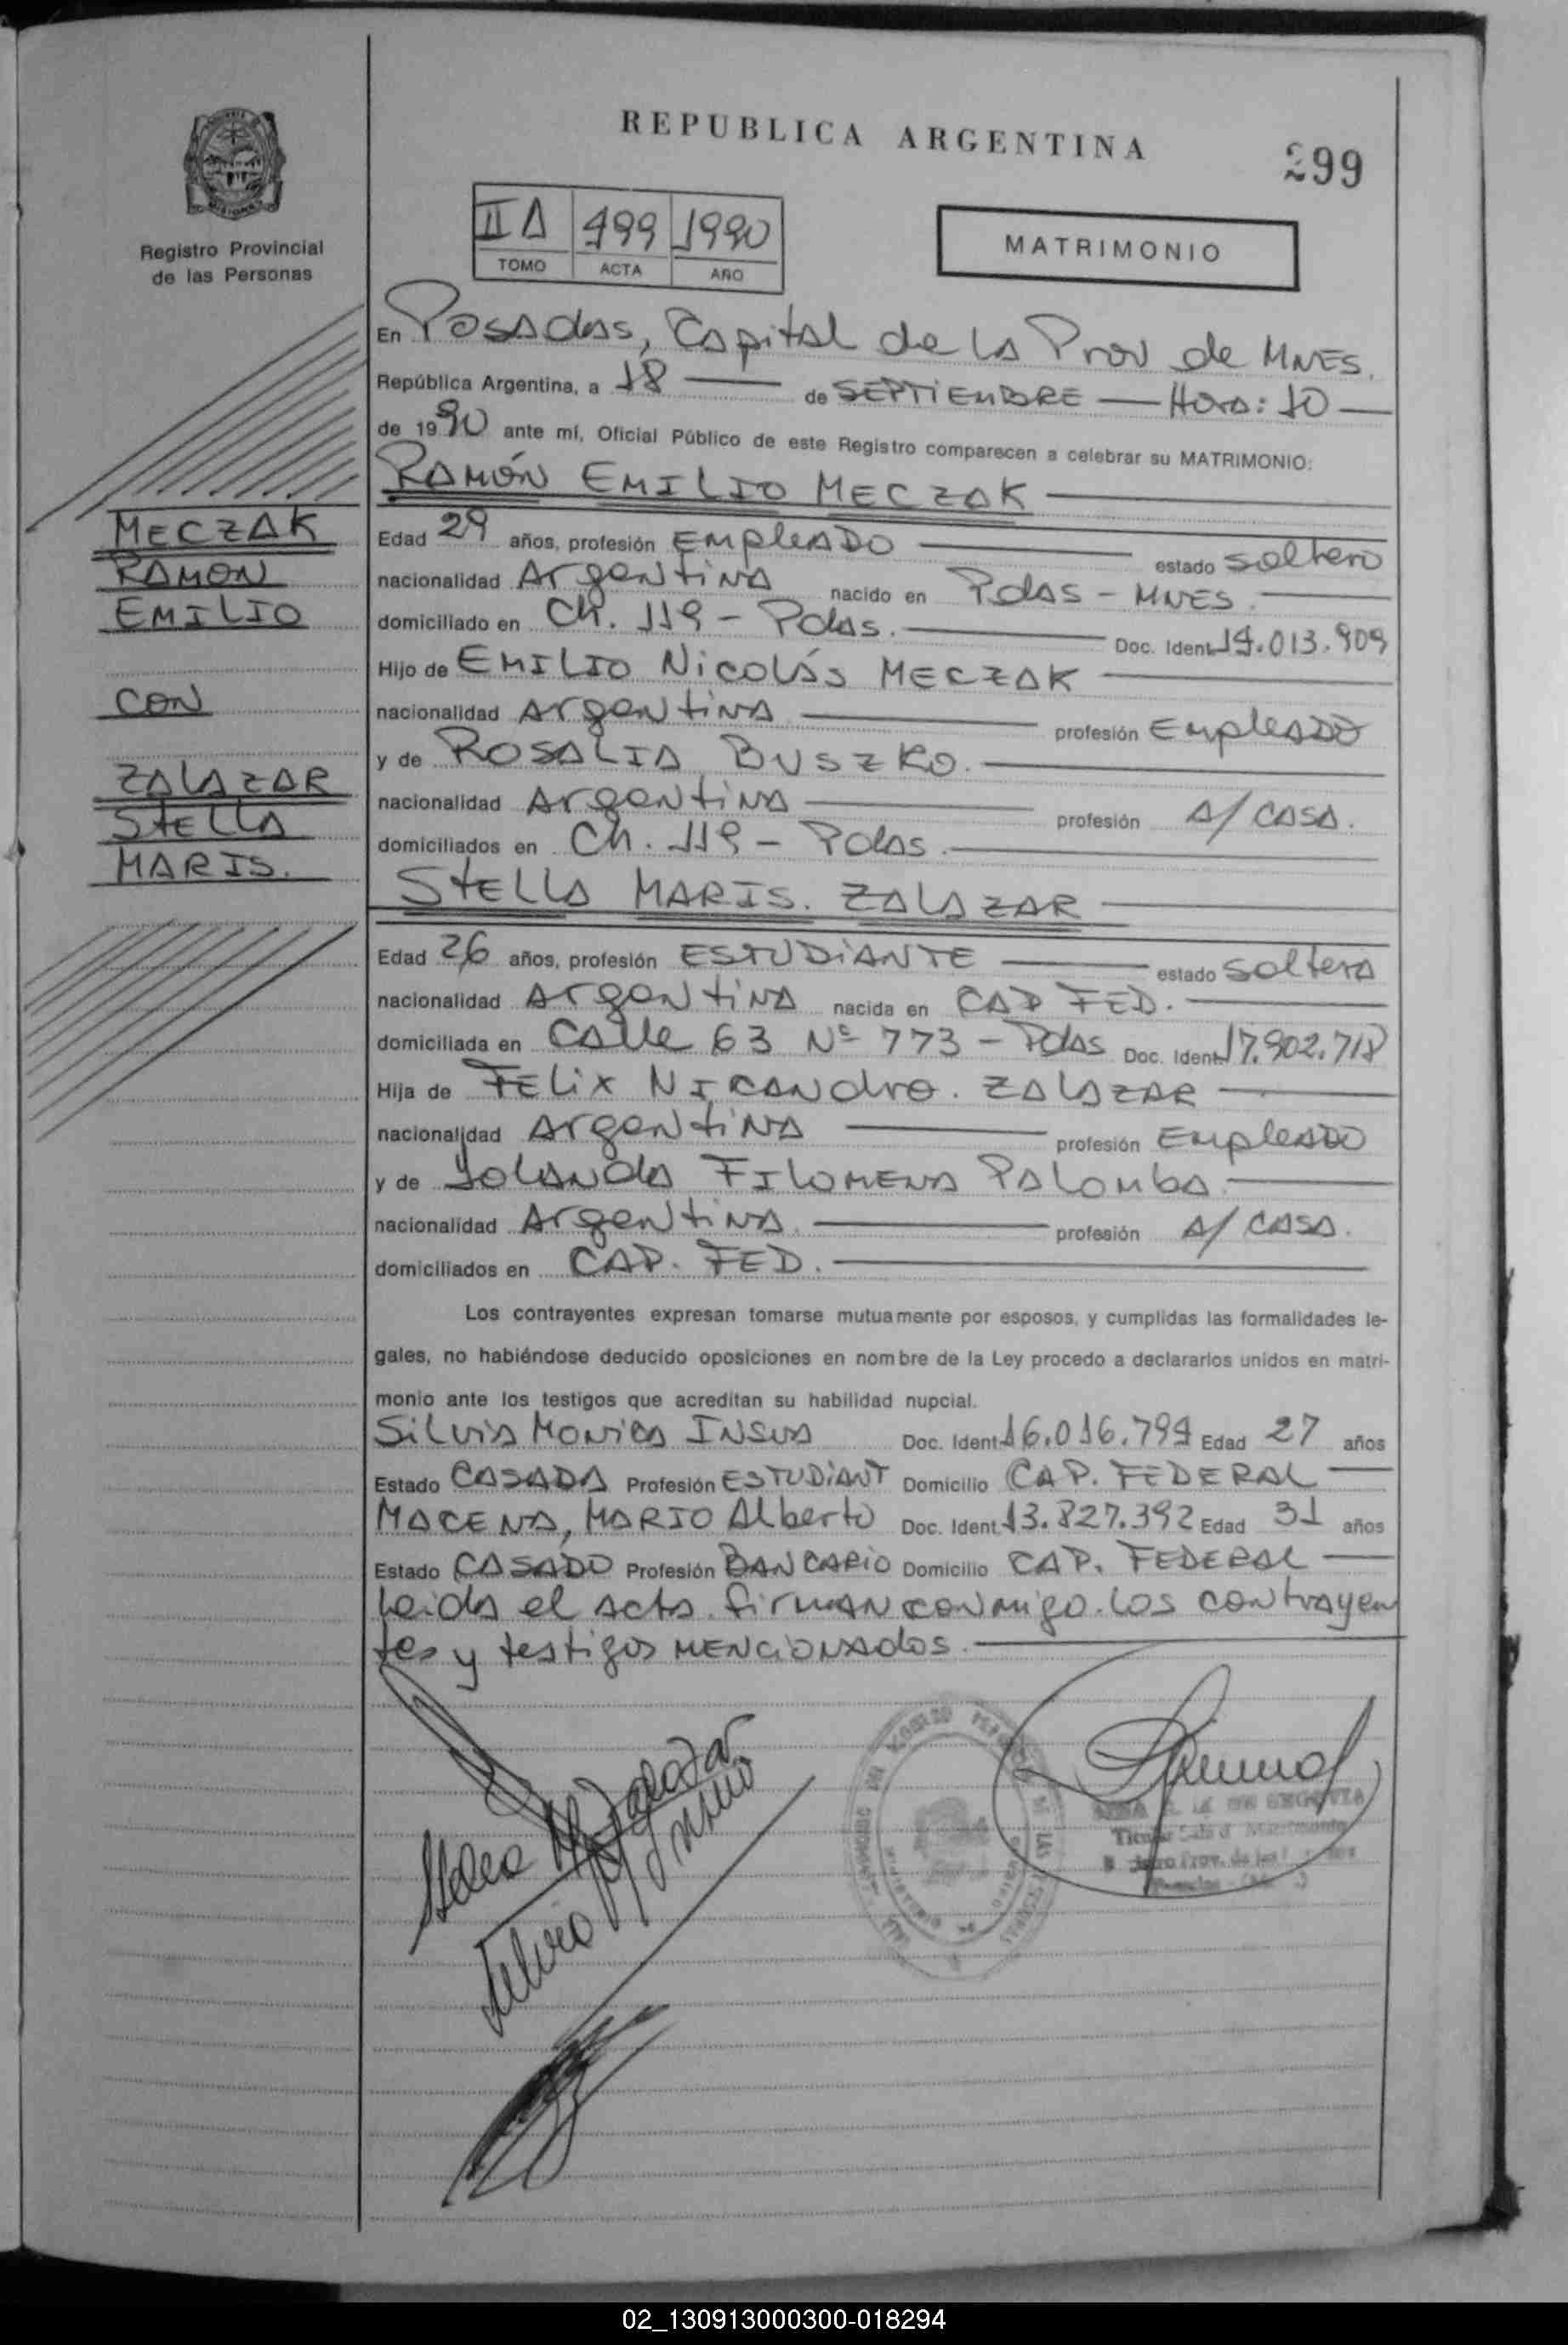 REPUBLICA ARGENTINA
299
Registro Provincial
de las Personas
II A 499 1990
TOMO ACTA AÑO
MATRIMONIO
En Posadas, Capital de la Prov de MNES.
República Argentina, a 18 de SEPTIEMBRE Hora: 10
de 1990 ante mí, Oficial Público de este Registro comparecen a celebrar su MATRIMONIO:
RAMÓN EMILIO MECZAK
MECZAK
RAMON
EMILIO
CON
ZALAZAR
STELLA
MARIS.
Edad 29 años, profesión EMPLEADO estado soltero
nacionalidad Argentina nacido en Pdas - MNES.
domiciliado en Ch. 119 - Pdas. Doc. Ident. 14.013.909
Hijo de EMILIO Nicolás MECZAK
nacionalidad Argentina profesión Empleado
y de ROSALIA BUSZKO.
nacionalidad Argentina profesión A/ CASA.
domiciliados en Ch. 119 - Pdas.
STELLA MARIS. ZALAZAR
Edad 26 años, profesión ESTUDIANTE estado soltera
nacionalidad Argentina nacida en CAP FED.
domiciliada en Calle 63 Nº 773 - Pdas Doc. Ident. 17.902.718
Hija de FELIX NICANdro. ZALAZAR
nacionalidad Argentina profesión Empleado
y de Yolanda FILOMENA Palomba.
nacionalidad Argentina. profesión A/ CASA.
domiciliados en CAP. FED.
Los contrayentes expresan tomarse mutuamente por esposos, y cumplidas las formalidades le-
gales, no habiéndose deducido oposiciones en nombre de la Ley procedo a declararlos unidos en matri-
monio ante los testigos que acreditan su habilidad nupcial.
Silvia Monica INSUA Doc. Ident. 16.016.794 Edad 27 años
Estado CASADA Profesión ESTUDIANT Domicilio CAP. FEDERAL
MACENA, MARIO Alberto Doc. Ident. 13.827.392 Edad 31 años
Estado CASADO Profesión BANCARIO Domicilio CAP. FEDERAL
Leida el acta. firman conmigo. los contrayen
tes y testigos MENCIONADOS.
02_130913000300-018294